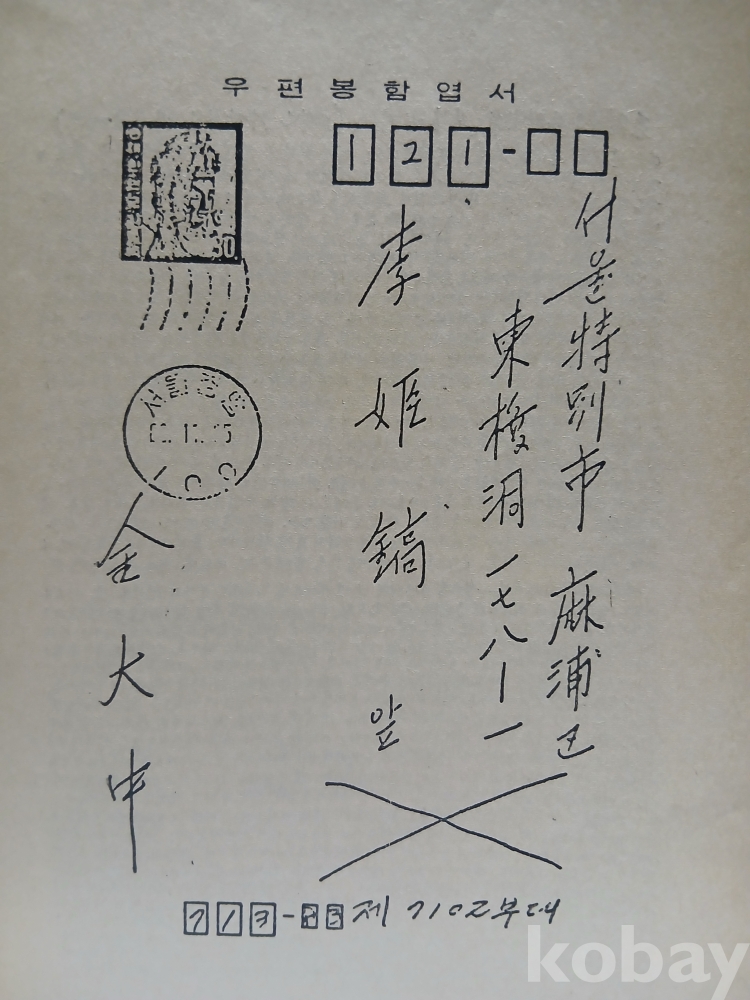 우편봉함엽서
121-
서울特別市 麻浦区
東橋洞 一七八—一
李姬鎬 앞
30
서울중앙
金大中
713-83 제 7102부대
kobay